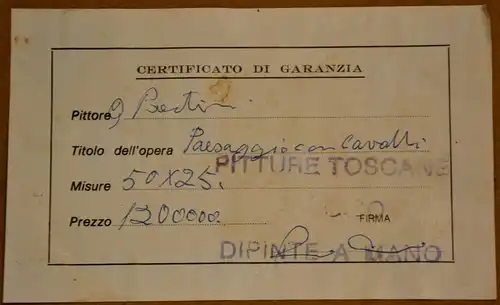 CERTIFICATO DI GARANZIA
Pittore G Bertini
Titolo dell'opera Paesaggio con Cavalli
PITTURE TOSCANE
Misure 50x25.
Prezzo 1200000
FIRMA
DIPINTE A MANO